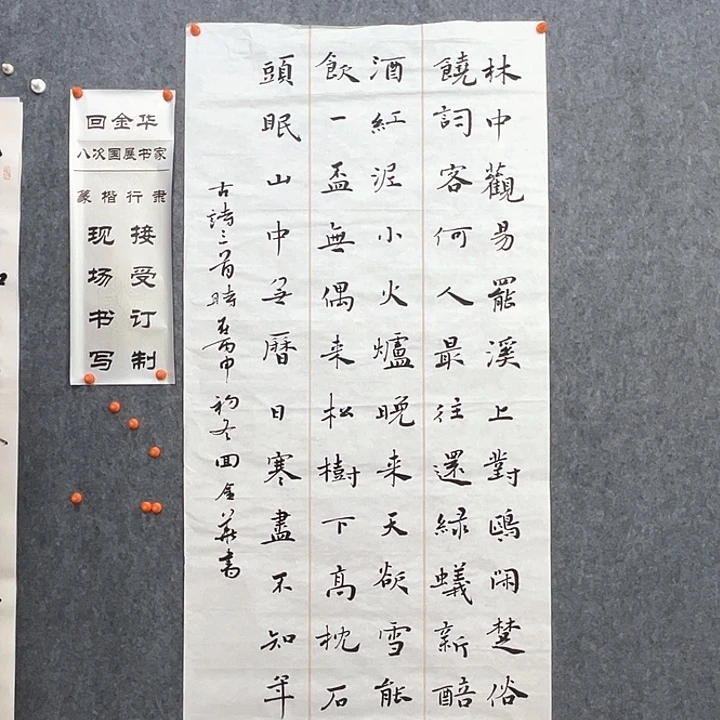 林中觀易罷溪上對鷗閑楚俗
饒詞客何人最往還緑蟻新醅
酒紅泥小火爐晚来天欲雪能
飲一盃無偶来松樹下高枕石
頭眠山中無曆日寒盡不知年
古詩三首時在丙申初冬回金華書
回金华
八次国展书家
篆楷行隶
现场书写
接受订制